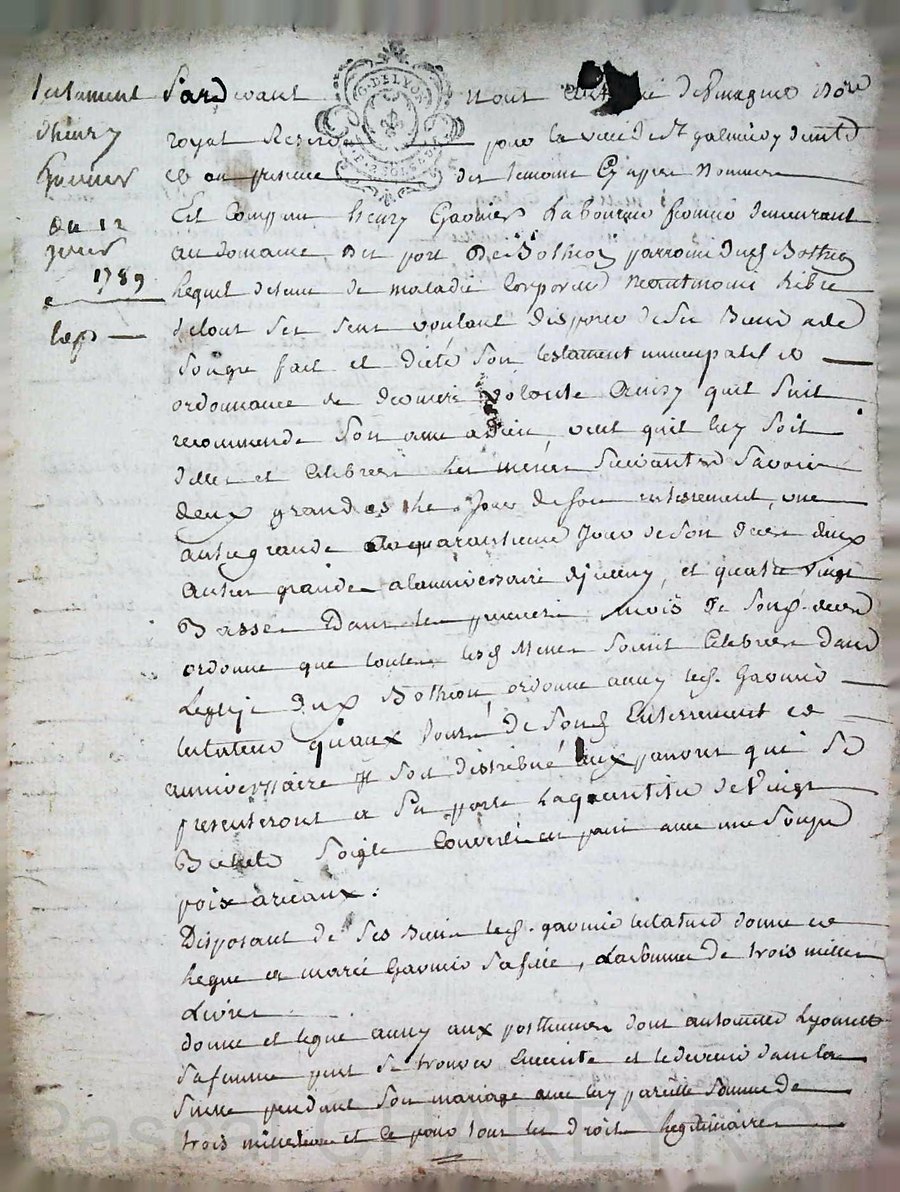 testament
d'henry
Gaonier
du 12
janvier
1789
Pardevant Nout de Rmagneo Nore
royal Reserve pour la ville de St galmier
et en presence des temoins Cy apprès Nommes
Est Comparu henry Gaonier Laboureur demeurant
au domaine du port De Bothion parroisse dud Bothion
Lequel detenu de maladie Corporelle Neantmoins Libre
de tout ses sens voulant disposer de ses Biens a de
son gré fait et dicté Son testament nuncupatif et
ordonnance de derniere volonté Ainsy quil Suit
recommende Son ame a dieu, veut quil luy Soit
dittes et Celebrées les messes Suivantes Savoir
deux grandes le Jour de son enterrement, une
autre grande au quarantieme Jour de Son deces deux
autres grandes a lanniversaire djceluy, et quatre vingt
Basses Dans les premiers mois de Sond. deces
ordonne que toutes lesd Messes Soient Celebrées dans
Leglise dud Bothion ordonne aussy led. Gaonier
testateur quaux Jours De Sond Enterrement et
anniversaire Il soit distribué aux pauvres qui Se
presenteront a Sa porte La quantité de Vingt
Bichets Soigle Convertie en pain avec une Soupe
pois aricaux.
Disposant de Ses Biens led. gaonier testateur donne et
legue a marie Gaonier Sa fille, La Somme de trois milles
Livres
donne et legue aussy aux posthumes dont antoinette Lyonnet
Sa femme peut Se trouver Enceinte et le devenir dans la
Suitte pendant Son mariage avec luy pareille Somme de
trois milles et ce pour tout les droits Legitimaires